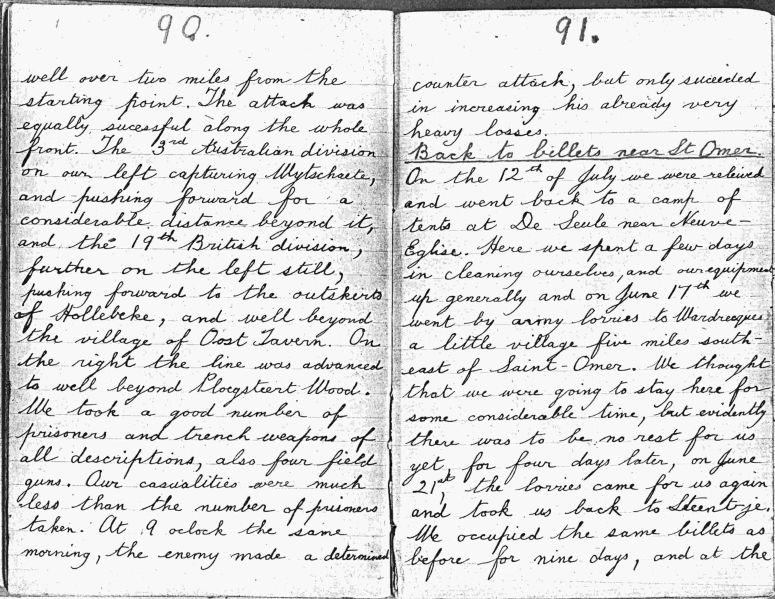 90.
well over two miles from the
starting point. The attack was
equally sucessful along the whole
front. The 3rd Australian division
on our left capturing Wytschaete,
and pushing forward for a
considerable distance beyond it,
and the 19th British division,
further on the left still,
pushing forward to the outskirts
of Hollebeke, and well beyond
the village of Oost Tavern. On
the right the line was advanced
to well beyond Plocgsteert Wood.
We took a good number of
prisoners and trench weapons of
all descriptions, also four field
guns. Our casualities were much
less than the number of prisoners
taken. At 9 oclock the same
morning, the enemy made a determined
91.
counter attack, but only suceeded
in increasing his already very
heavy losses.
Back to billets near St Omer.
On the 12th of July we were releived
and went back to a camp of
tents at De Seule near Neuve-
Eglise. Here we spent a few days
in cleaning ourselves, and our equipment
up generally and on June 17th we
went by army lorries to Wardrecques
a little village five miles south-
east of Saint-Omer. We thought
that we were going to stay here for
some considerable time, but evidently
there was to be no rest for us
yet, for four days later, on June
21st, the lorries came for us again
and took us back to Steent-je.
We occupied the same billets as
before for nine days, and at the